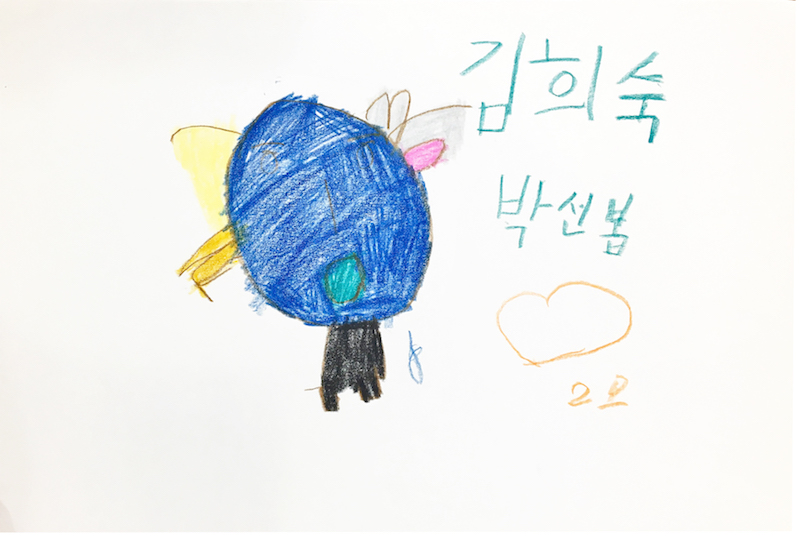 김희숙
박선봄
2모